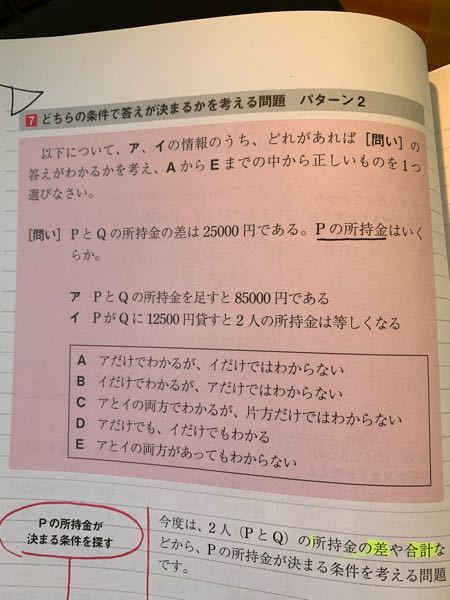 7 どちらの条件で答えが決まるかを考える問題 パターン2
以下について、ア、イの情報のうち、どれがあれば［問い］の
答えがわかるかを考え、AからEまでの中から正しいものを1つ
選びなさい。
［問い］PとQの所持金の差は25000円である。Pの所持金はいく
らか。
ア PとQの所持金を足すと85000円である
イ PがQに12500円貸すと2人の所持金は等しくなる
A アだけでわかるが、イだけではわからない
B イだけでわかるが、アだけではわからない
C アとイの両方でわかるが、片方だけではわからない
D アだけでも、イだけでもわかる
E アとイの両方があってもわからない
Pの所持金が
決まる条件を探す
今度は、2人（PとQ）の所持金の差や合計な
どから、Pの所持金が決まる条件を考える問題
です。